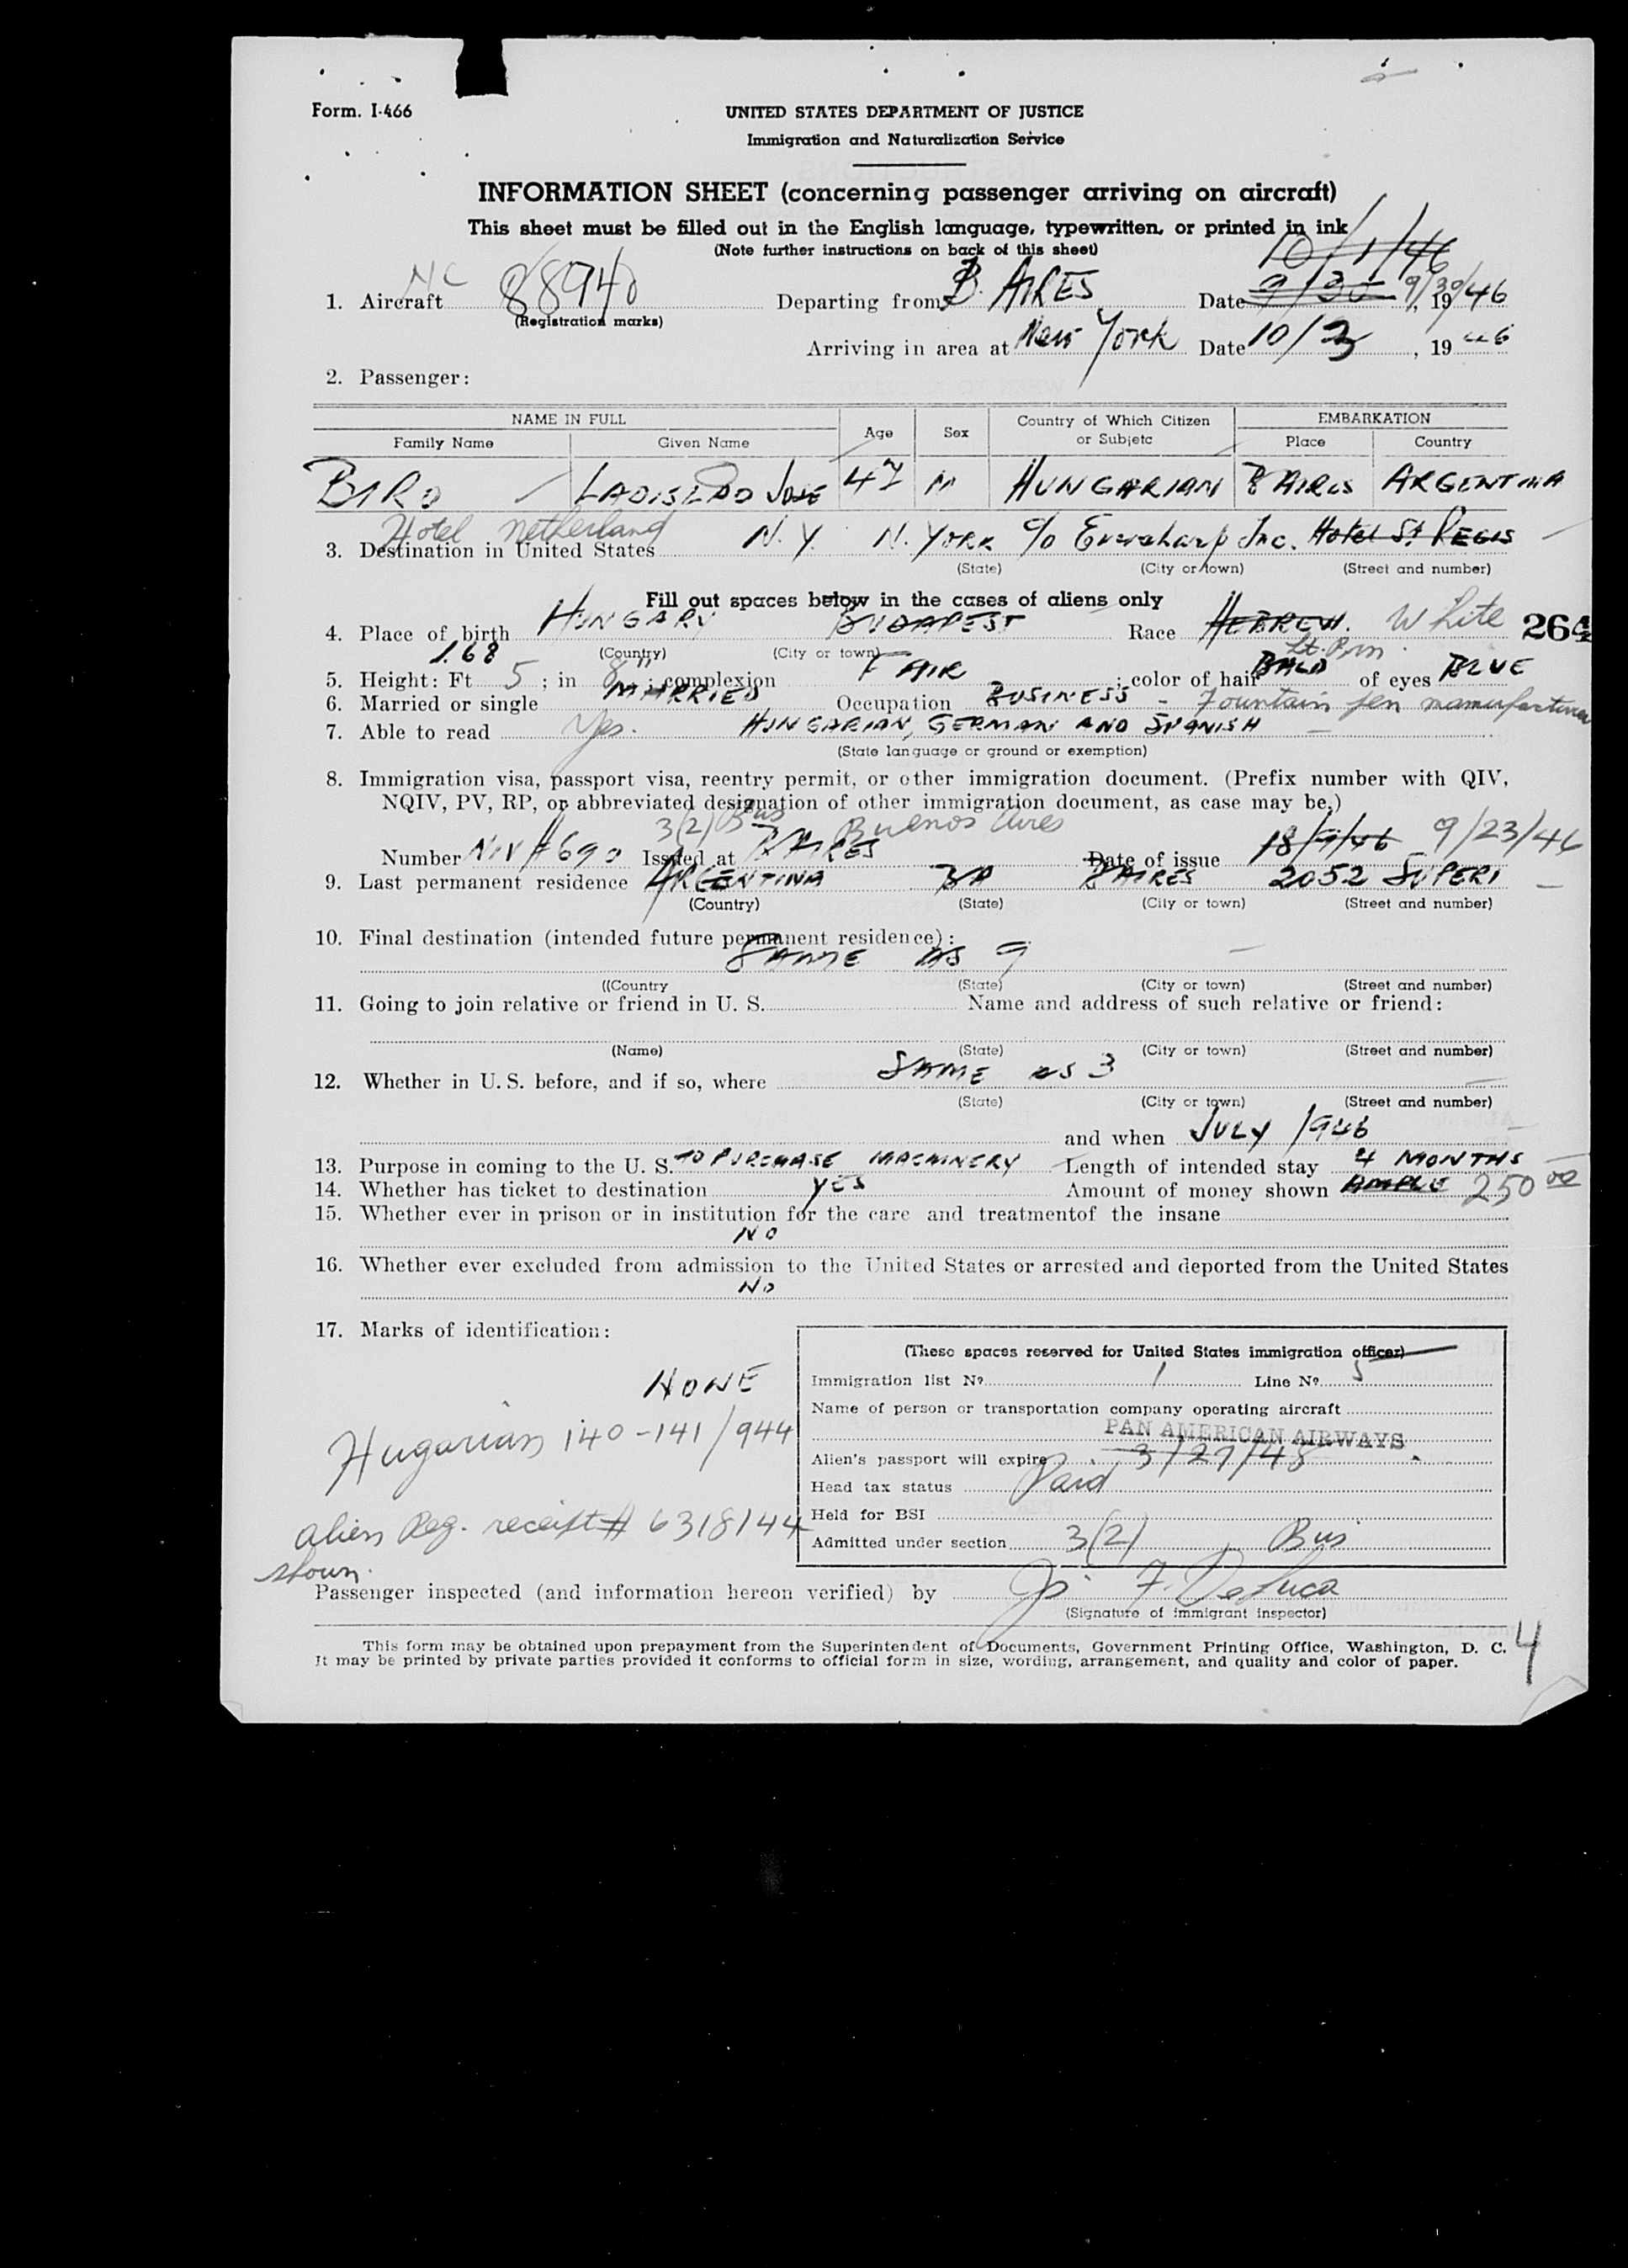 Form. I-466
UNITED STATES DEPARTMENT OF JUSTICE
Immigration and Naturalization Service
INFORMATION SHEET (concerning passenger arriving on aircraft)
This sheet must be filled out in the English language, typewritten, or printed in ink
(Note further instructions on back of this sheet)
10/1/46
1. Aircraft NC 88940 Departing from B. AIRES Date 9/30 9/30, 19/46
(Registration marks)
Arriving in area at New York Date 10/2, 19 46
2. Passenger:
NAME IN FULL Age Sex Country of Which Citizen or Subjetc EMBARKATION
Family Name Given Name Place Country
BIRO LADISLAO JOSE 47 M HUNGARIAN B AIRES ARGENTINA
Hotel Netherland
3. Destination in United States N.Y. N. YORK c/o Eversharp Inc. Hotel St REGIS
(State) (City or town) (Street and number)
Fill out spaces below in the cases of aliens only
4. Place of birth HUNGARY BUDAPEST Race HEBREW. White 264
(Country) (City or town)
1.68 Lt. Brn.
5. Height: Ft 5; in 8"; complexion FAIR; color of hair BALD of eyes BLUE
6. Married or single MARRIED Occupation BUSINESS - Fountain pen manufacturer
7. Able to read Yes. HUNGARIAN, GERMAN AND SPANISH
(State language or ground or exemption)
8. Immigration visa, passport visa, reentry permit, or other immigration document. (Prefix number with QIV,
NQIV, PV, RP, or abbreviated designation of other immigration document, as case may be.)
3(2) Bus Buenos Aires
Number NIV # 690 Issued at B AIRES Date of issue 18/9/46 9/23/46
9. Last permanent residence ARGENTINA BA B AIRES 2052 SUPERI
(Country) (State) (City or town) (Street and number)
10. Final destination (intended future permanent residence):
SAME AS 9
((Country (State) (City or town) (Street and number)
11. Going to join relative or friend in U. S. Name and address of such relative or friend:
(Name) (State) (City or town) (Street and number)
12. Whether in U. S. before, and if so, where SAME AS 3
(State) (City or town) (Street and number)
and when JULY 1946
13. Purpose in coming to the U. S. TO PURCHASE MACHINERY Length of intended stay 4 MONTHS
14. Whether has ticket to destination YES Amount of money shown AMPLE 250 00
15. Whether ever in prison or in institution for the care and treatmentof the insane
NO
16. Whether ever excluded from admission to the United States or arrested and deported from the United States
NO
17. Marks of identification:
NONE
Hugarian 140-141/944
alien Reg. receipt # 6318144
shown.
(These spaces reserved for United States immigration officer)
Immigration list No. 1 Line No. 5
Name of person or transportation company operating aircraft
PAN AMERICAN AIRWAYS
Alien's passport will expire 3/27/48
Head tax status Paid
Held for BSI
Admitted under section 3(2) Bus
Passenger inspected (and information hereon verified) by F. DeLuca
(Signature of immigrant inspector)
This form may be obtained upon prepayment from the Superintendent of Documents, Government Printing Office, Washington, D. C.
It may be printed by private parties provided it conforms to official form in size, wording, arrangement, and quality and color of paper.
4